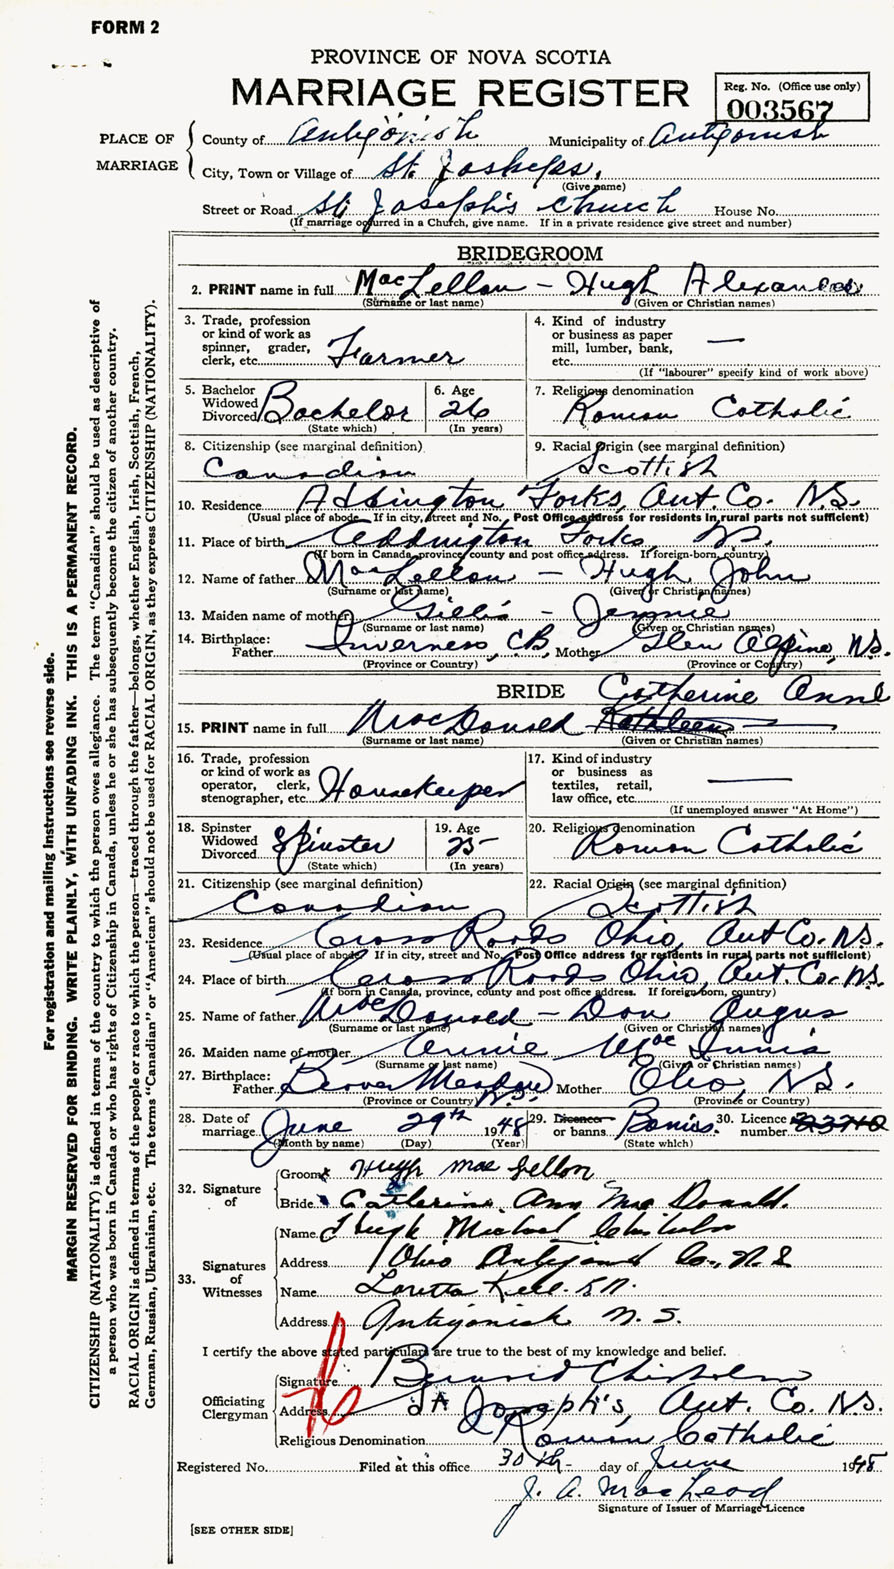 FORM 2
PROVINCE OF NOVA SCOTIA
MARRIAGE REGISTER
Reg. No. (Office use only)
003567
PLACE OF MARRIAGE
County of Antigonish Municipality of Antigonish
City, Town or Village of St. Josheps,
(Give name)
Street or Road St. Joseph's Church House No.
(If marriage occurred in a Church, give name. If in a private residence give street and number)
BRIDEGROOM
2. PRINT name in full MacLellan - Hugh Alexander
(Surname or last name) (Given or Christian names)
3. Trade, profession or kind of work as spinner, grader, clerk, etc. Farmer
4. Kind of industry or business as paper mill, lumber, bank, etc. —
(If "labourer" specify kind of work above)
5. Bachelor Widowed Divorced Bachelor (State which)
6. Age 26 (In years)
7. Religious denomination Roman Catholic
8. Citizenship (see marginal definition) Canadian
9. Racial Origin (see marginal definition) Scottish
10. Residence Addington Forks, Ant. Co. N.S.
(Usual place of abode. If in city, street and No. Post Office address for residents in rural parts not sufficient)
11. Place of birth Addington Forks, N.S.
(If born in Canada, province, county and post office address. If foreign-born, country)
12. Name of father MacLellan - Hugh John
(Surname or last name) (Given or Christian names)
13. Maiden name of mother Gillis - Jennie
(Surname or last name) (Given or Christian names)
14. Birthplace: Father Inverness, C.B. Mother Glen Alpine, N.S.
(Province or Country) (Province or Country)
BRIDE Catherine Anne
15. PRINT name in full MacDonald Kathleen —
(Surname or last name) (Given or Christian names)
16. Trade, profession or kind of work as operator, clerk, stenographer, etc. Housekeeper
17. Kind of industry or business as textiles, retail, law office, etc. —
(If unemployed answer "At Home")
18. Spinster Widowed Divorced Spinster (State which)
19. Age 25 (In years)
20. Religious denomination Roman Catholic
21. Citizenship (see marginal definition) Canadian
22. Racial Origin (see marginal definition) Scottish
23. Residence Cross Roads Ohio, Ant Co. N.S.
(Usual place of abode. If in city, street and No. Post Office address for residents in rural parts not sufficient)
24. Place of birth Cross Roads Ohio, Ant. Co. N.S.
(If born in Canada, province, county and post office address. If foreign-born, country)
25. Name of father MacDonald - Dan Angus
(Surname or last name) (Given or Christian names)
26. Maiden name of mother Annie MacInnis
(Surname or last name) (Given or Christian names)
27. Birthplace: Father Beaver Meadow N.S. Mother Ohio, N.S.
(Province or Country) (Province or Country)
28. Date of marriage June 29th 1948
(Month by name) (Day) (Year)
29. Licence or banns Banns. (State which)
30. Licence number 23710
32. Signature of
Groom Hugh MacLellan
Bride Catherine Ann MacDonald.
33. Signatures of Witnesses
Name Hugh Michael Chisholm
Address Ohio Antigonish Co., N.S
Name Loretta R.N.
Address Antigonish N.S.
I certify the above stated particulars are true to the best of my knowledge and belief.
Officiating Clergyman
Signature Bernard Chisholm
Address St Joseph's, Ant. Co. N.S.
Religious Denomination Roman Catholic
Registered No. Filed at this office 30th day of June 1948
J. A. MacLeod
Signature of Issuer of Marriage Licence
[SEE OTHER SIDE]
For registration and mailing instructions see reverse side.
MARGIN RESERVED FOR BINDING. WRITE PLAINLY, WITH UNFADING INK. THIS IS A PERMANENT RECORD.
CITIZENSHIP (NATIONALITY) is defined in terms of the country to which the person owes allegiance. The term "Canadian" should be used as descriptive of
a person who was born in Canada or who has rights of Citizenship in Canada, unless he or she has subsequently become the citizen of another country.
RACIAL ORIGIN is defined in terms of the people or race to which the person—traced through the father—belongs, whether English, Irish, Scottish, French,
German, Russian, Ukrainian, etc. The terms "Canadian" or "American" should not be used for RACIAL ORIGIN, as they express CITIZENSHIP (NATIONALITY).